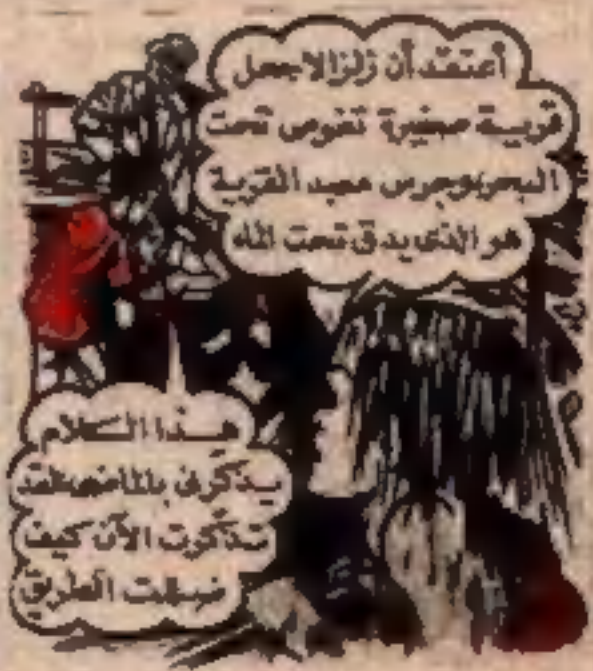 أعتقد أن زلزالا جعل
قرية صغيرة تغوص تحت
البحر وجرس معبد القرية
هو الذي يدق تحت الماء
هذا الكلام
يذكرني بالماضي لقد
تذكرت الآن كيف
ضللت الطريق